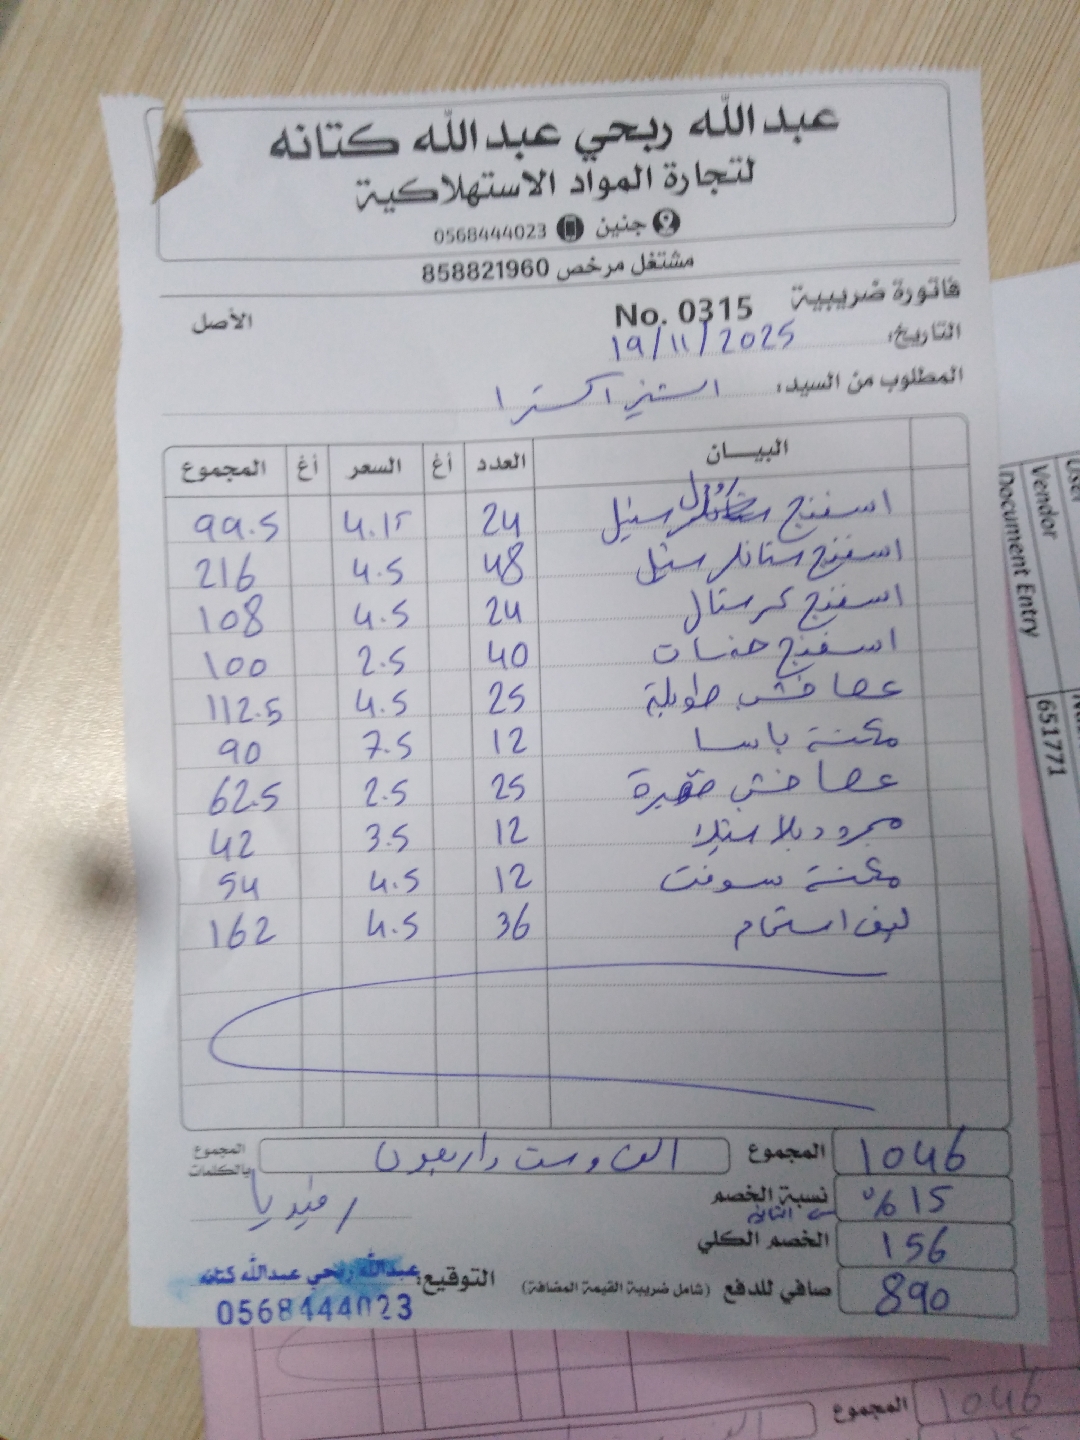 عبدالله ربحي عبدالله كتانه
لتجارة المواد الاستهلاكية
جنين 0568444023
مشتغل مرخص 858821960
فاتورة ضريبية No. 0315 الأصل
التاريخ: 19/11/2025
المطلوب من السيد: اكسترا
البيــان العدد أغ السعر أغ المجموع
اسفنج ستيل 24 4.15 99.5
اسفنج ستانلس ستيل 48 4.5 216
اسفنج كرستال 24 4.5 108
اسفنج 40 2.5 100
عصا خشب طويلة 25 4.5 112.5
مكنسة باسا 12 7.5 90
عصا خشب قصيرة 25 2.5 62.5
مجرود بلاستيك 12 3.5 42
مكنسة سوفت 12 4.5 54
ليف استحمام 36 4.5 162
المجموع 1046
المجموع بالكلمات الف وست واربعون
نسبة الخصم %15
الخصم الكلي 156
صافي للدفع (شامل ضريبة القيمة المضافة) 890
التوقيع:
عبدالله ربحي عبدالله كتانه
0568444023
User
Vendor
Document Entry
651771
المجموع 1046